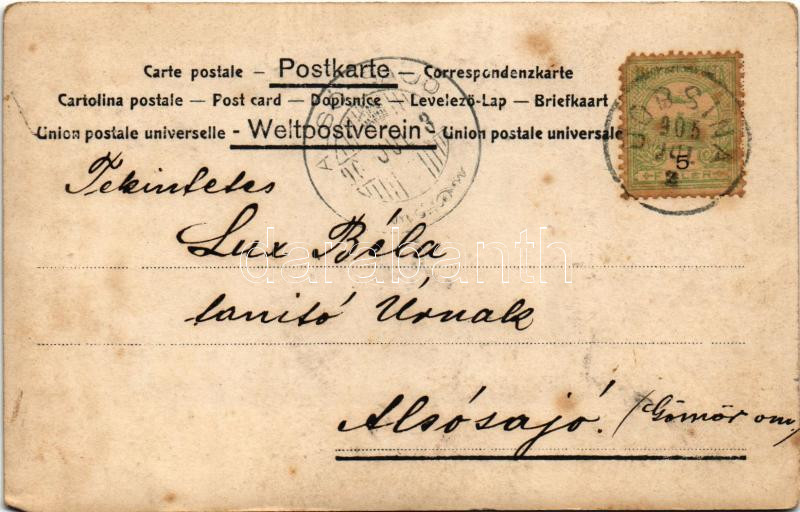 Carte postale – Postkarte – Correspondenzkarte
Cartolina postale — Post card — Dopisnice — Levelező-Lap — Briefkaart
Union postale universelle - Weltpostverein - Union postale universale
DOBSINA
905
JUL
2
5
FILLER
Tekintetes
Lux Béla
tanító Úrnak
Alsósajó. (Gömör m.)
darabanth